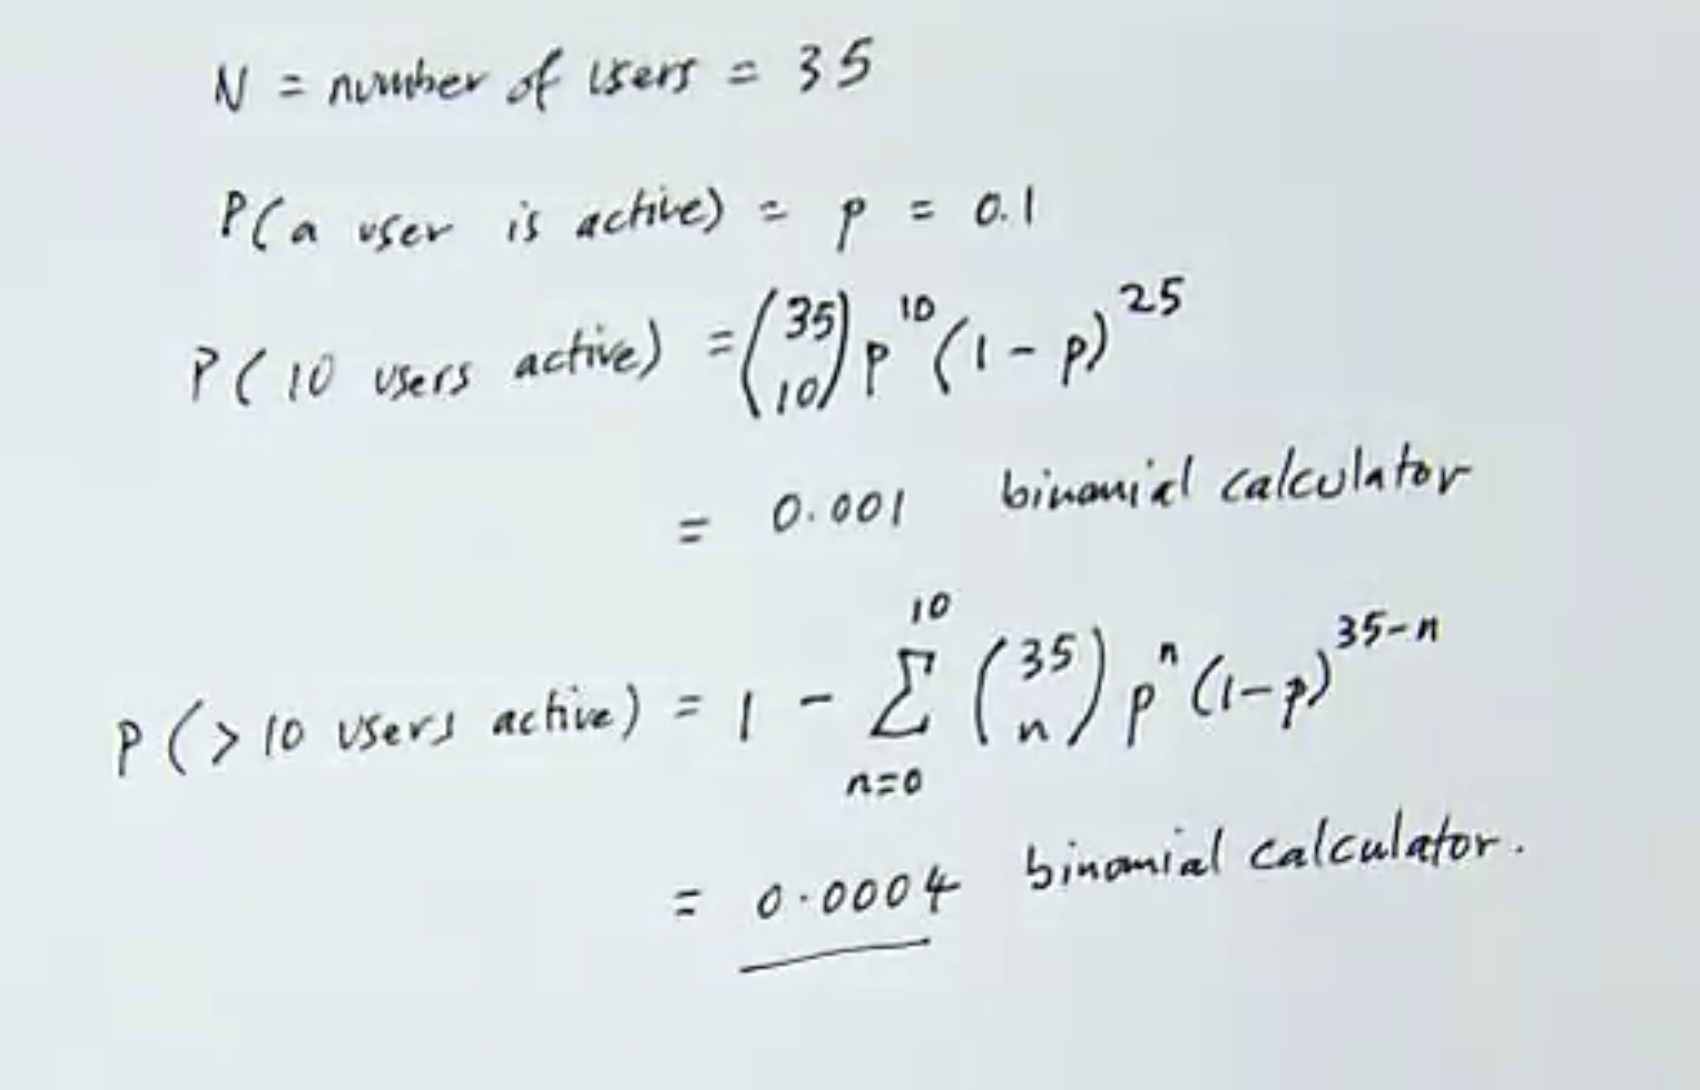 N = number of users = 35
P(a user is active) = p = 0.1
P(10 users active) = (35 10) p^10 (1-p)^25
= 0.001 binomial calculator
P(>10 users active) = 1 - Σ_{n=0}^{10} (35 n) p^n (1-p)^{35-n}
= 0.0004 binomial calculator.